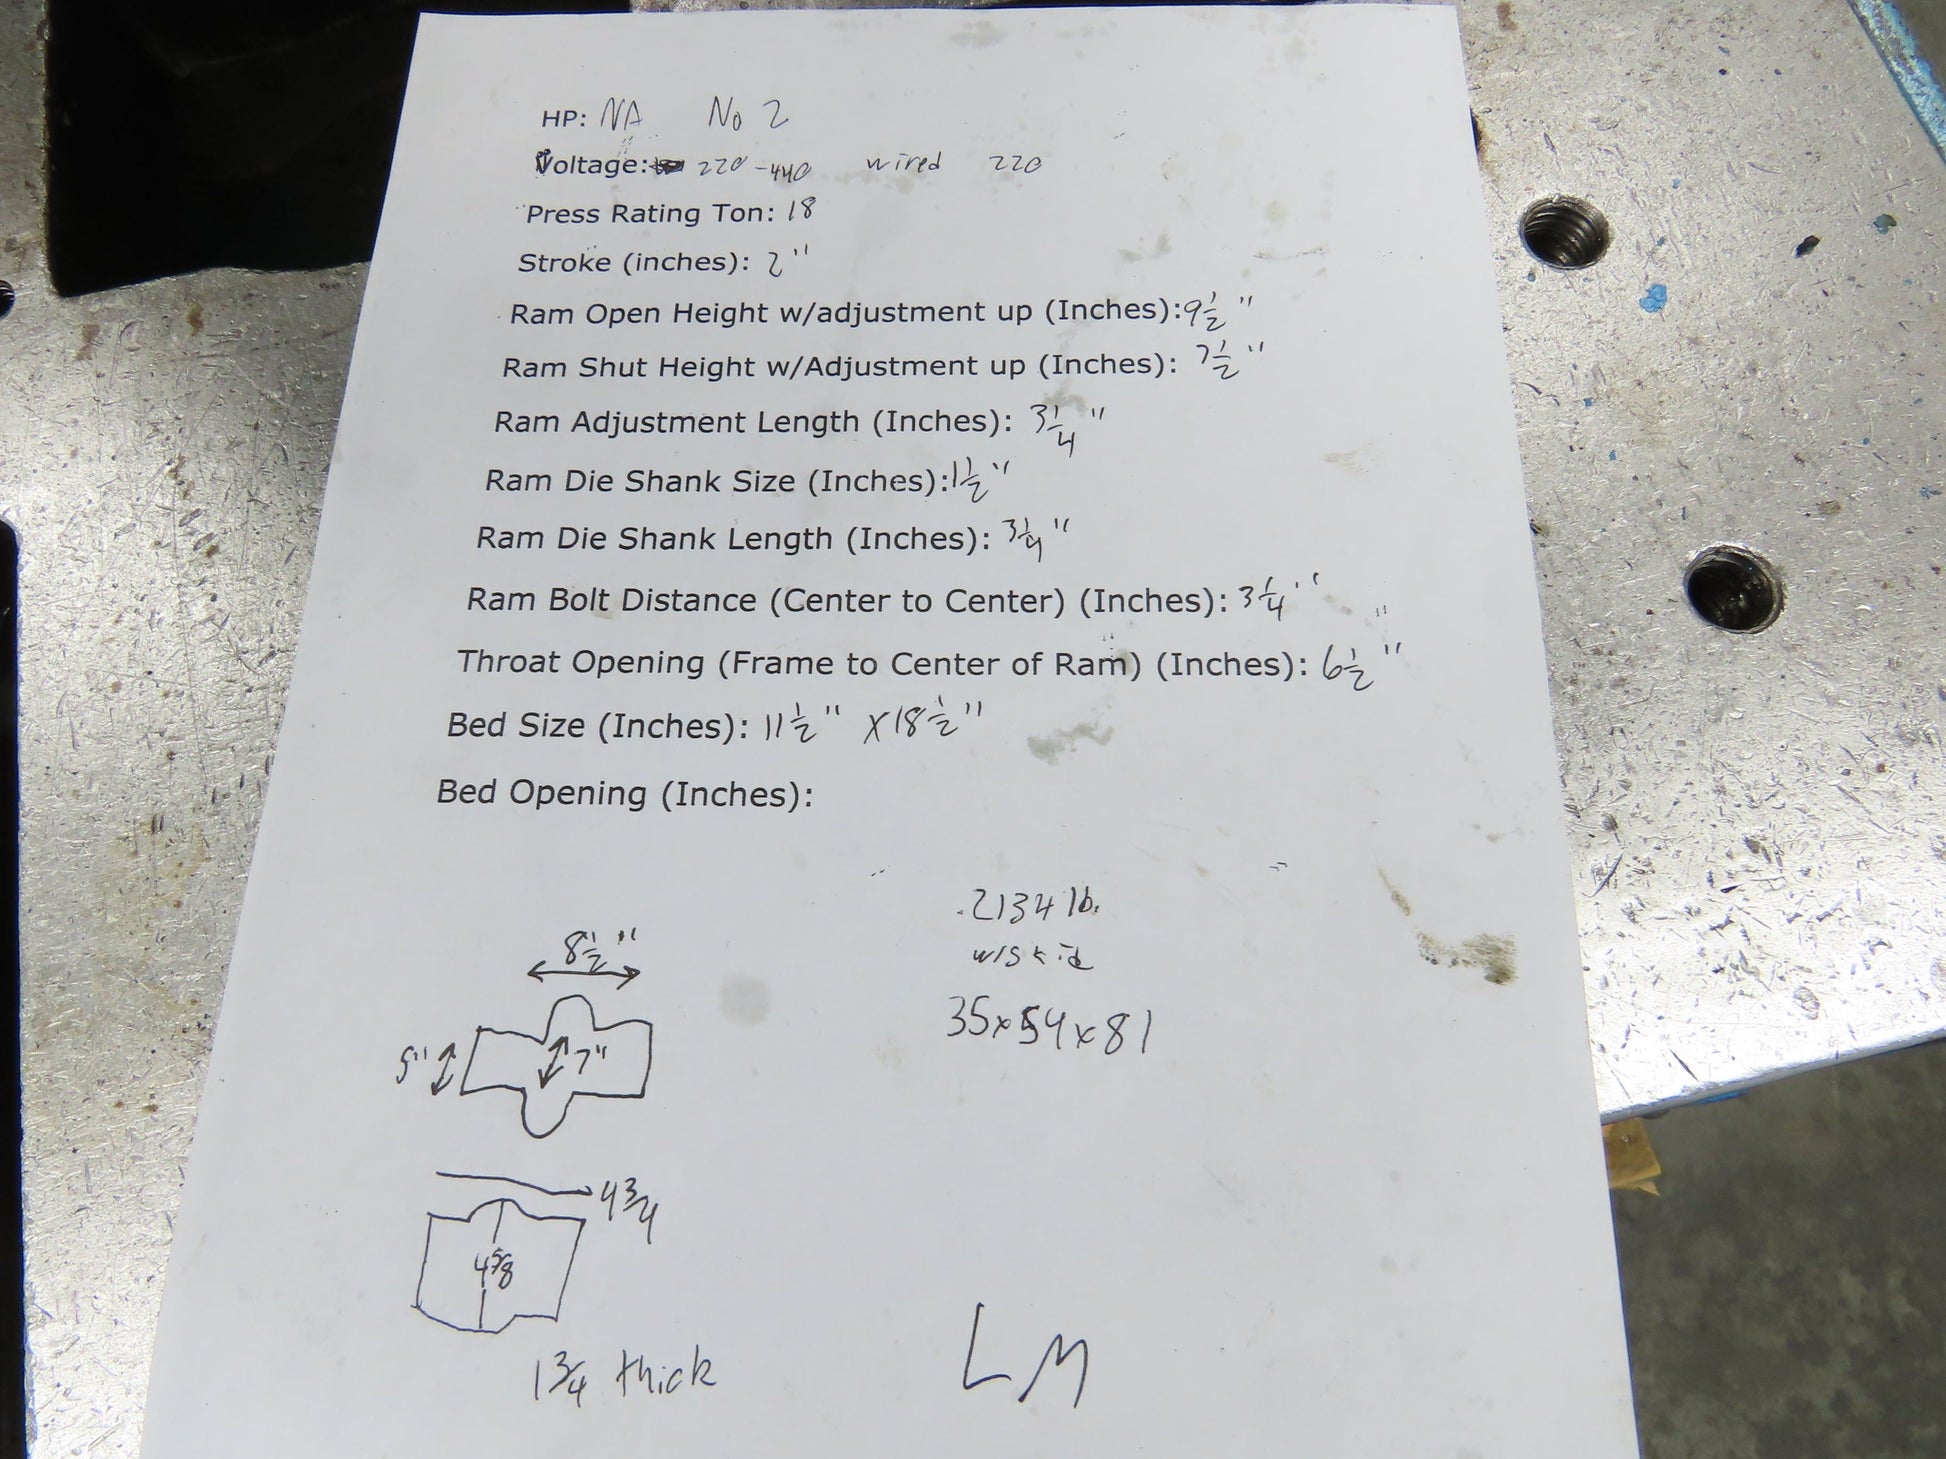 HP: NA No 2
Voltage: 220-440 wired 220
Press Rating Ton: 18
Stroke (inches): 2"
Ram Open Height w/adjustment up (Inches): 9 1/2"
Ram Shut Height w/Adjustment up (Inches): 7 1/2"
Ram Adjustment Length (Inches): 3 1/4"
Ram Die Shank Size (Inches): 1 1/2"
Ram Die Shank Length (Inches): 3 1/4"
Ram Bolt Distance (Center to Center) (Inches): 3 1/4"
Throat Opening (Frame to Center of Ram) (Inches): 6 1/2"
Bed Size (Inches): 11 1/2" x 18 1/2"
Bed Opening (Inches):
2134 lb.
w/skid
35x54x81
8 1/2"
5" 7"
4 3/4
4 5/8
1 3/4 thick
LM